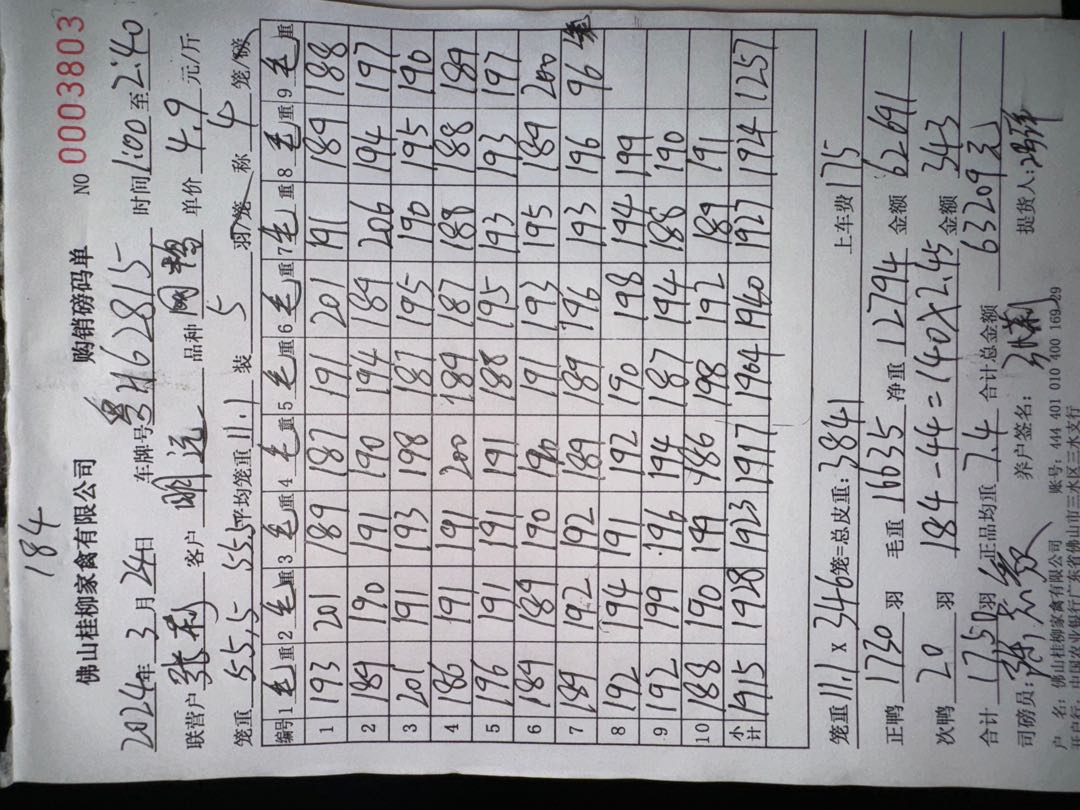 184
佛山桂柳家禽有限公司 购销磅码单 NO 0003803
2024年3月24日 车牌号粤H62815 时间1:00至2:40
联营户张利 客户明远 品种 单价4.9元/斤
笼重55.5 55.5平均笼重11.1装5羽/笼 称4笼/磅
编号 1毛重 2毛重 3毛重 4毛重 5毛重 6毛重 7毛重 8毛重 9毛重
1 193 201 189 187 191 201 191 189 188
2 189 190 191 190 194 189 206 194 197
3 201 191 193 198 187 195 190 195 190
4 186 191 191 200 189 187 188 188 189
5 196 191 191 191 188 195 193 193 197
6 189 189 190 190 191 193 195 189 200
7 189 192 192 189 189 196 193 196 96
8 192 194 191 192 190 198 194 199
9 192 199 196 194 187 194 188 190
10 188 190 199 186 198 192 189 191
小计 1915 1928 1923 1917 1904 1940 1927 1924 1257
笼重11.1×346笼=总皮重:3841 上车费175
正鸭1730羽 毛重16635净重12794金额62691
次鸭20羽 184-44=140×2.45金额343
合计1750羽正品均重7.4合计总金额63209元
司磅员: 养户签名:张利 提货人:
户 名:佛山桂柳家禽有限公司 账号:444 401 010 400 169 29
开户行:中国农业银行广东省佛山市三水区三水支行